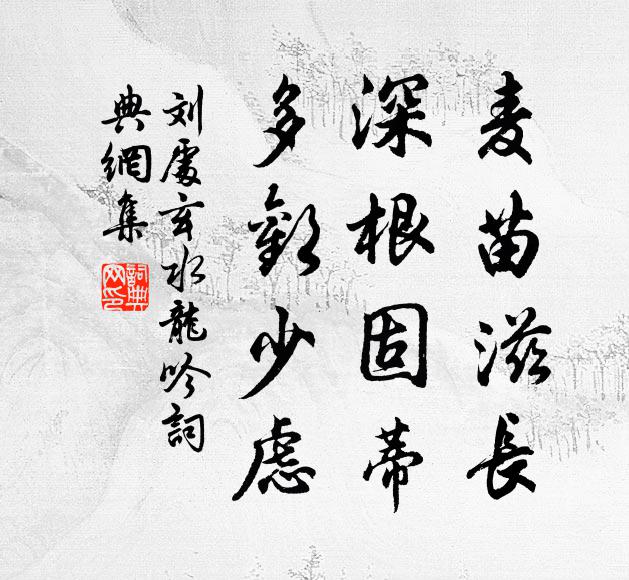 麦苗滋長
深根固蒂
多歡少慮
刘處玄水龍吟詞
典網集
詞典网印